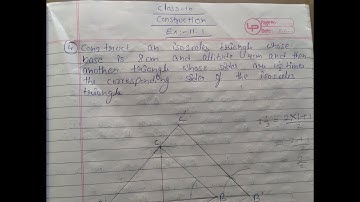 Class-10
Construction
Ex-11.1
4 Construct an isosceles triangle whose
base is 8cm and altitude 4cm and then
another triangle whose sides are 1½ times
the corresponding sides of the isosceles
triangle
C'
C
B B'